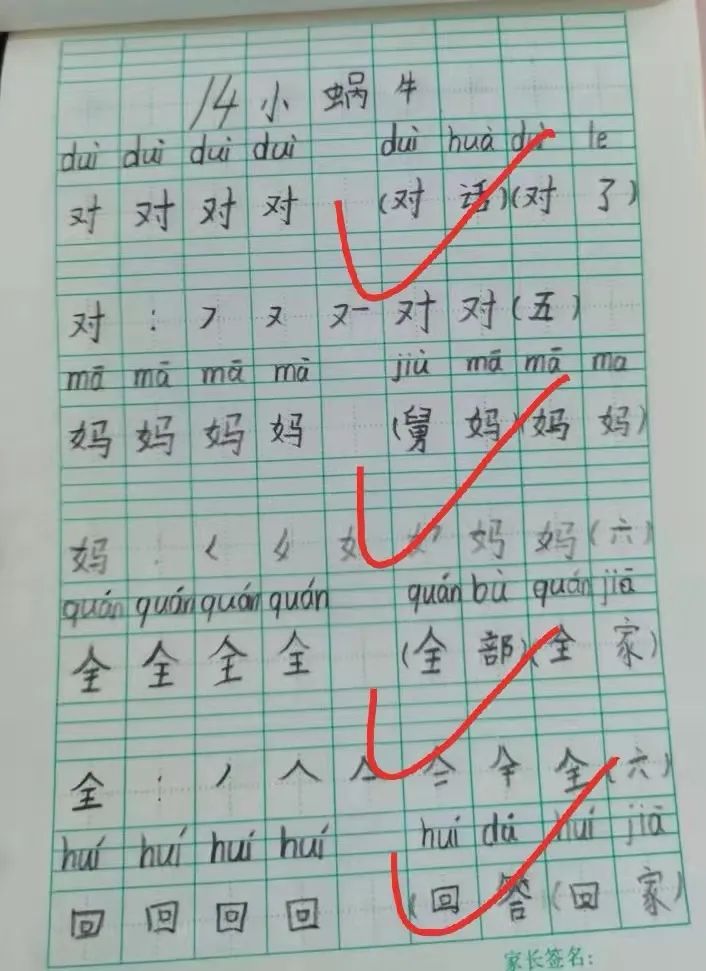 14 小 蜗 牛
duì duì duì duì duì huà duì le
对 对 对 对 (对 话)(对 了)
对 : フ 又 又一 对 对 (五)
mā mā mā mā jiù mā mā ma
妈 妈 妈 妈 (舅 妈)(妈 妈)
妈 : く 女 女 妈 妈 (六)
quán quán quán quán quán bù quán jiā
全 全 全 全 (全 部)(全 家)
全 : 丿 人 全 (六)
huí huí huí huí huí dá huí jiā
回 回 回 回 (回 答)(回 家)
家长签名: